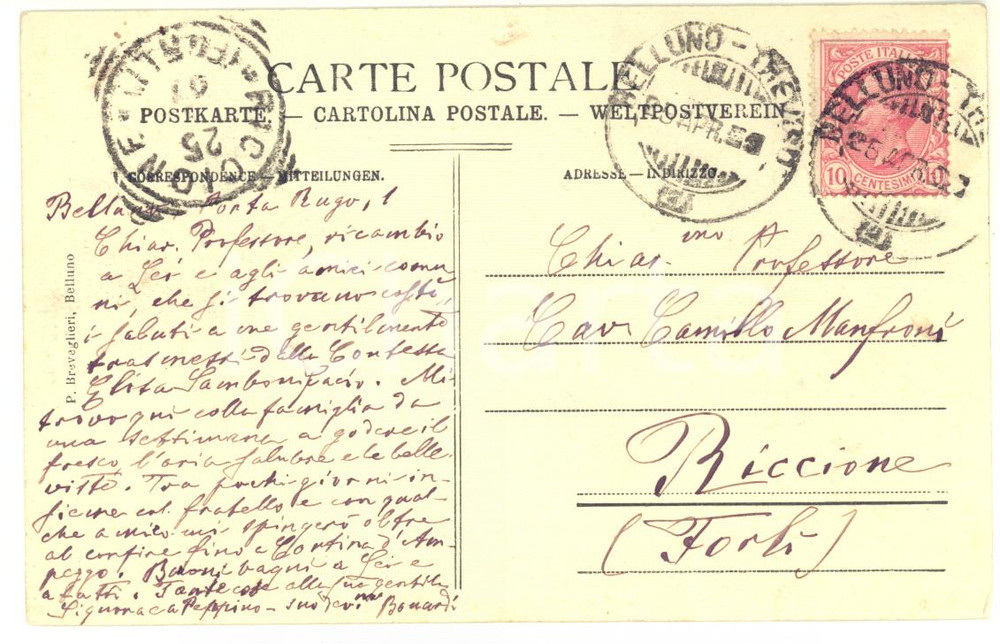 CARTE POSTALE
POSTKARTE. — CARTOLINA POSTALE. — WELTPOSTVEREIN
CORRESPONDENCE — MITTEILUNGEN.
ADRESSE — INDIRIZZO.
RICCIONE
25
07
BELLUNO - TREVISO
APR
(2)
POSTE ITALIANE
10 CENTESIMI 10
BELLUNO - TREVISO
25
(2)
P. Breveglieri, Belluno
Belluno Porta Rugo, 1
Chiar. Professore, ricambio
a Lei e agli amici comu
ni, che si trovano costì,
i saluti a me gentilmente
trasmessi dalla Contessa
Elisa Sambonifacio. Mi
trovo qui colla famiglia da
una settimana a godere il
fresco, l'aria salubre e le belle
viste. Tra pochi giorni in-
sieme col fratello e con qual-
che amico mi spingerò oltre
al confine fino a Cortina d'Am-
pezzo. Buoni bagni a Lei e
a tutti. Tante cose alla sua gentile
Signora e a Peppino - suo dev.mo Bonardi
Chiar.mo Professore
Cav. Camillo Manfroni
Riccione
(Forlì)